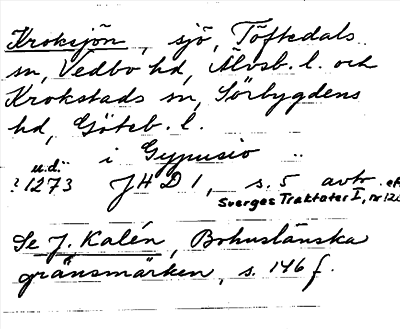 Kroksjön, sjö, Töftedals
sn, Vedbo hd, Älvsb. l. och
Krokstads sn, Sörbygdens
hd, Göteb. l.
i Gypusio
u.d.
? 1273 JHD 1, s. 5 avtr. e
Sverges Traktater I, nr 12
Se J. Kalén, Bohuslänska
gränsmärken, s. 146 f.